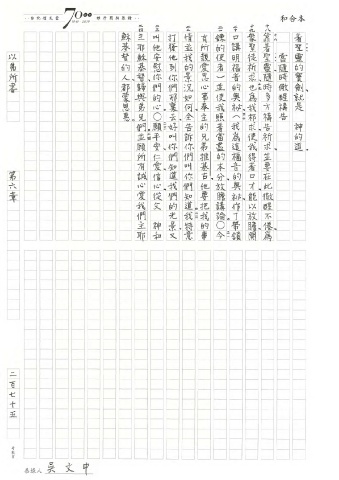 和合本
70
著聖靈的寶劍就是 神的道
當隨時儆醒禱告
靠著聖靈隨時多方禱告祈求並要在此儆醒不倦為
眾聖徒祈求也為我祈求使我得著口才能以放膽開
口講明福音的奧祕(我為這福音的奧祕作了帶鎖
鍊的使者)並使我照著當盡的本分放膽講論〇今
有所親愛忠心事奉主的兄弟推基古他要把我的事
情並我的景況如何全告訴你們叫你們知道我特意
打發他到你們那裏去好叫你們知道我們的光景又
叫他安慰你們的心〇願平安仁愛信心從父 神和
主耶穌基督歸與弟兄們並願所有誠心愛我們主耶
穌基督的人都蒙恩惠
以弗所書 第六章 二百七十五
吳文中